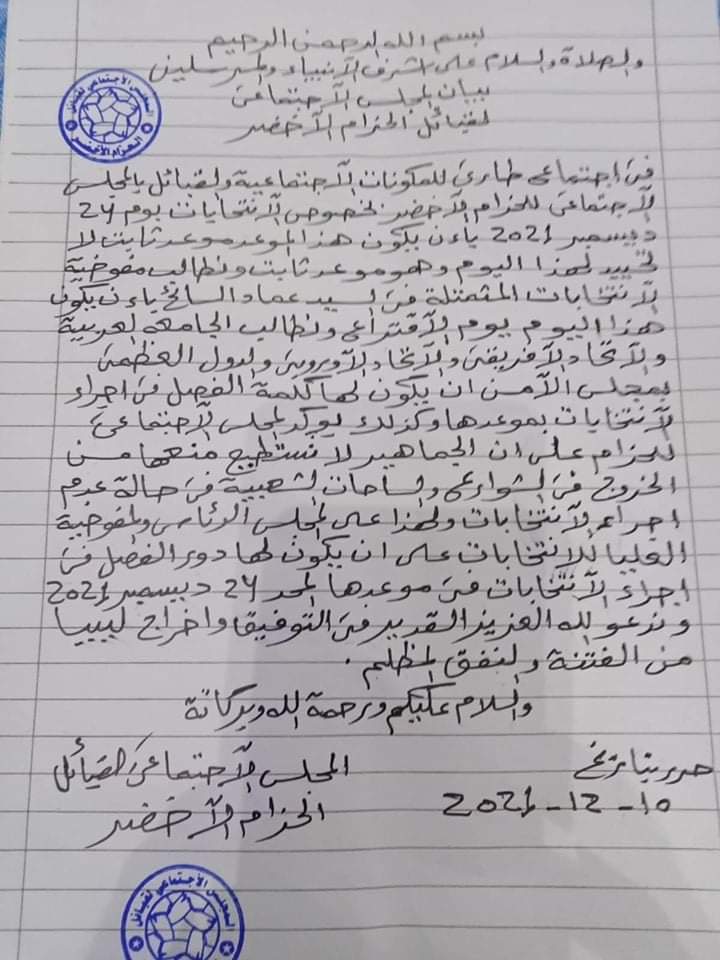 بسم الله الرحمن الرحيم
والصلاة والسلام على اشرف الأنبياء والمرسلين
بيان المجلس الآجتماعي
لقبائل الحزام الآخضر
المجلس الاجتماعي لقبائل
الحزام الأخضر
في اجتماعي طارئ للمكونات الآجتماعية ولقبائل بالمجلس
الآجتماعي للحزام الآخضر بخصوص الآنتخابات يوم 24
ديسمبر 2021 بآن يكون هذا الموعد موعد ثابت لا
تحييد لهذا اليوم وهو موعد ثابت ونطالب مفوضية
الآنتخابات المثمتلة في السيد عماد السائح بآن يكون
هذا اليوم يوم الآقتراعي ونطالب الجامعه العربية
والآتحاد الآفريقي والآتحاد الآوروبي والدول العظمى
بمجلس الآمن ان يكون لها كلمة الفصل في اجراء
الآنتخابات بموعدها وكذلك يوكد المجلس الآجتماعي
للحزام على ان الجماهير لا نستطيع منعها من
الخروج في الشوارعي والساحات الشعبية في حالة عدم
اجراء الآنتخابات ولهذا على المجلس الرئاسي والمفوضية
العليا للانتخابات على ان يكون لها دور الفصل في
اجراء الآنتخابات في موعدها المحدد 24 ديسمبر 2021
وندعو لله العزيز القدير في التوفيق واخراج ليبيا
من الفتنة والنفق المظلم .
والسلام عليكم ورحمة الله وبركاتة
حرر بتاريخ
10-12-2021
المجلس الآجتماعي لقبائل
الحزام الآخضر
المجلس الاجتماعي لقبائل